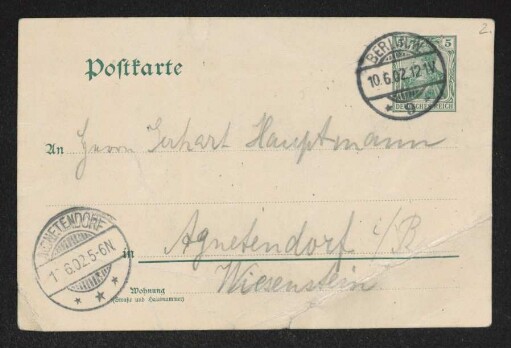 2.
Postkarte
BERLIN.W.
10.6.02.12-1V.
* 9 *
5
DEUTSCHES REICH
An Herrn Gerhart Hauptmann
AGNETENDORF
6.02.5-6N
* * *
in Agnetendorf i/R
Wiesenstein
Wohnung
(Straße und Hausnummer)